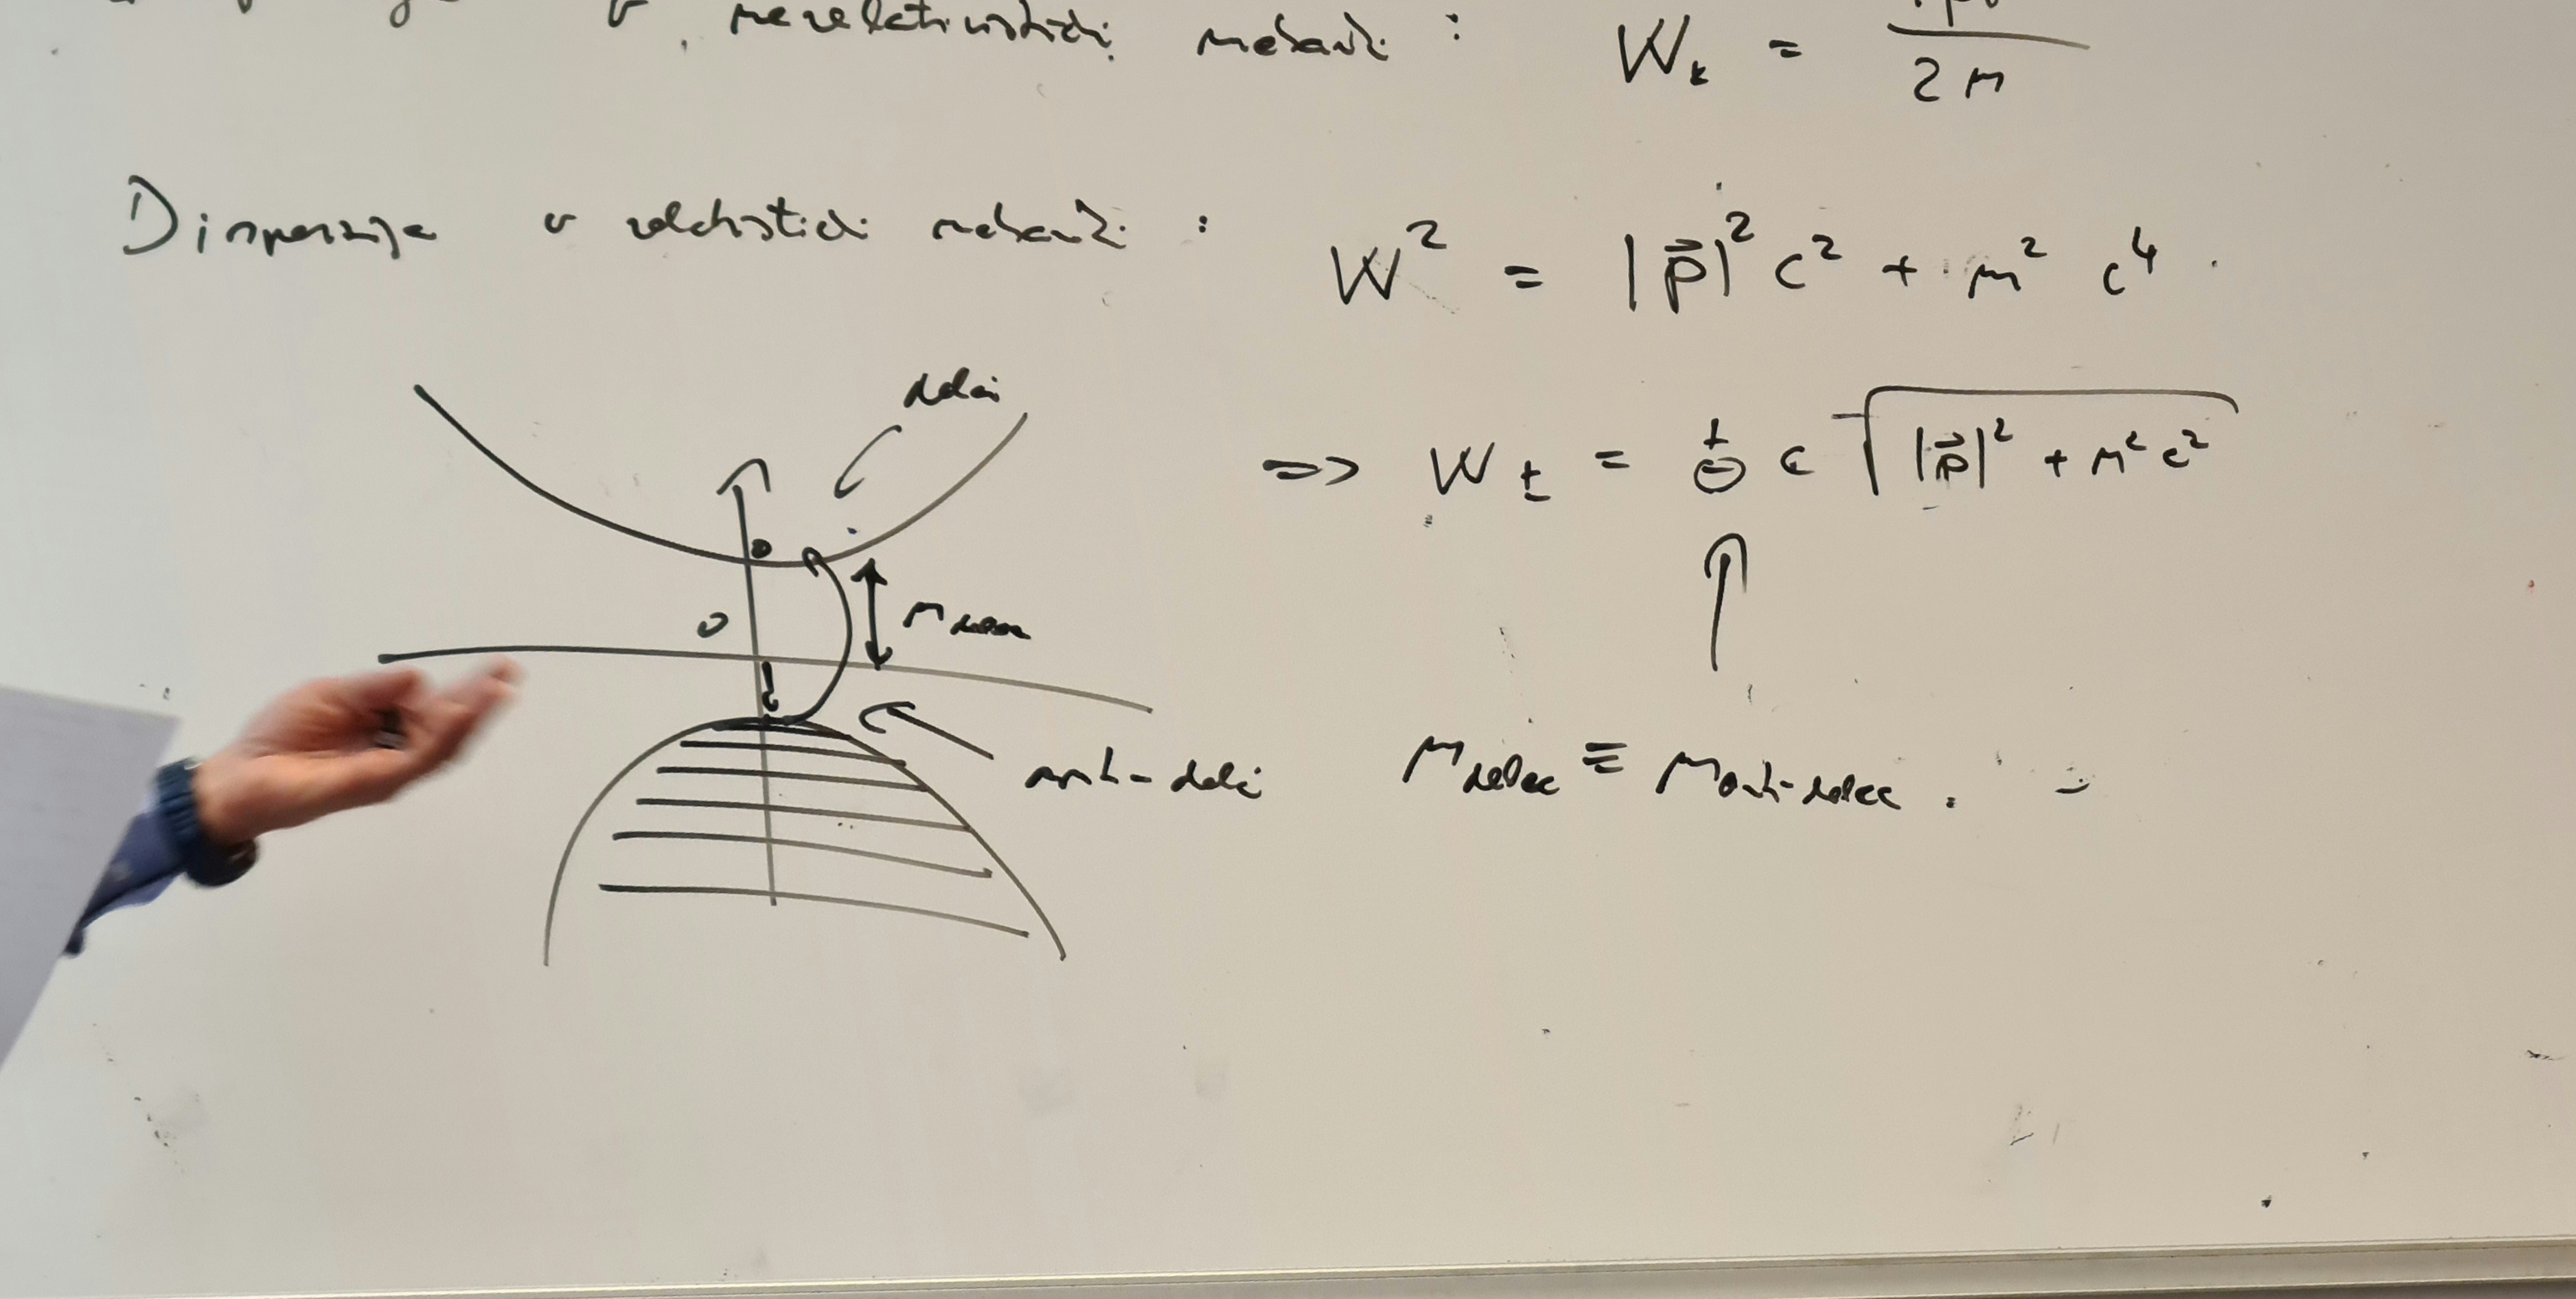 v nerelativistični mehaniki : W_k = |p|² / 2m
Disperzija v relativistični mehaniki : W² = |p⃗|² c² + m² c⁴ .
delci
⇒ W_± = ± c √(|p⃗|² + m² c²)
0
m_delca
anti-delci
m_delec ≡ m_anti-delec .